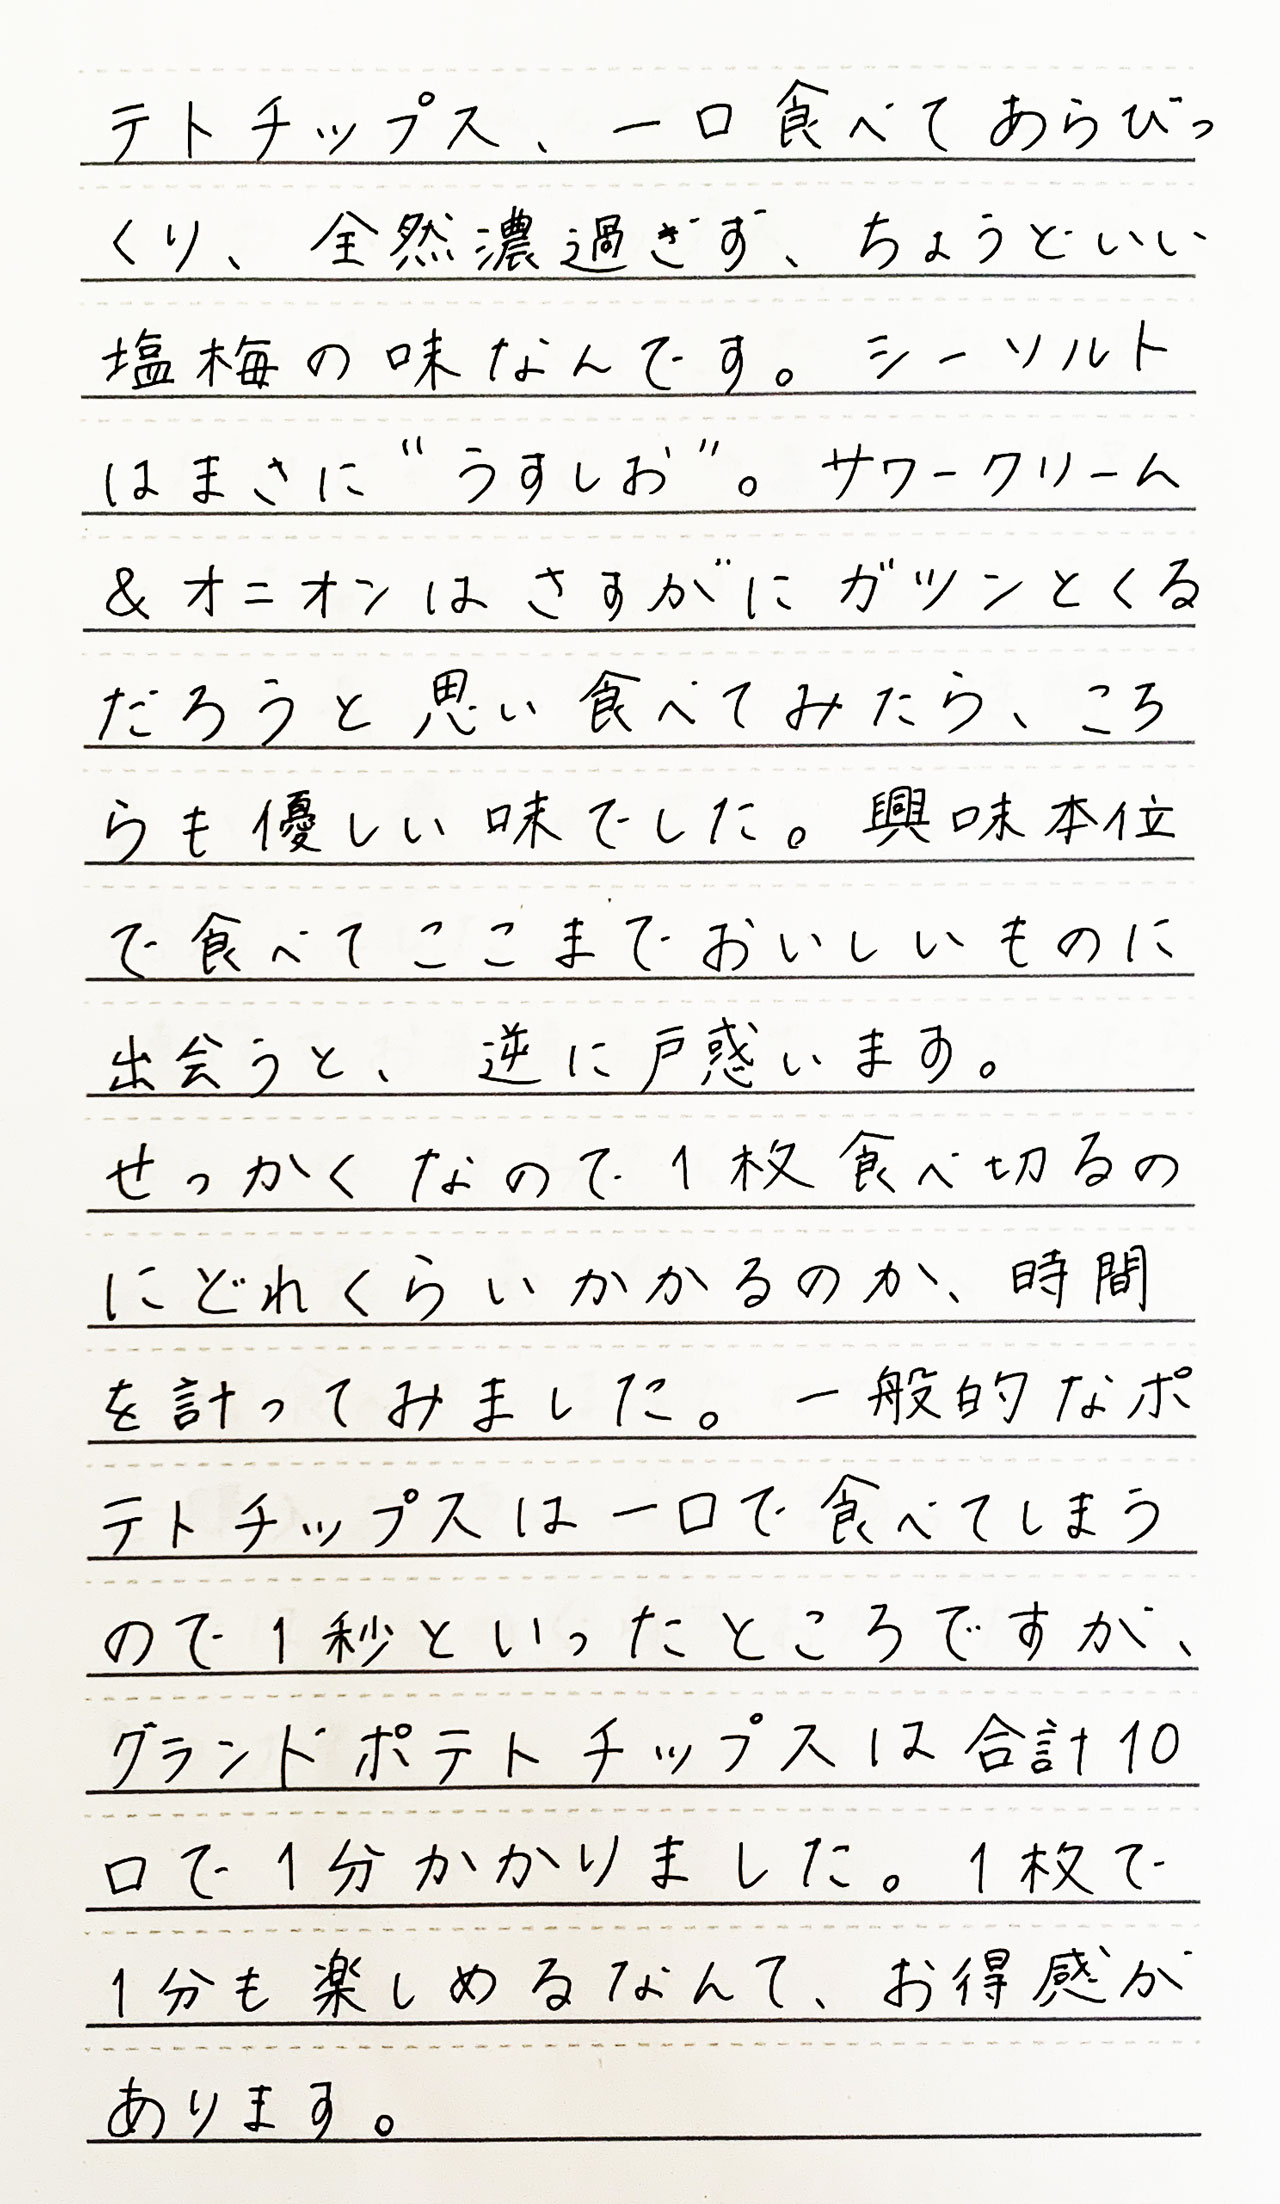 テトチップス、一口食べてあらびっ
くり、全然濃過ぎず、ちょうどいい
塩梅の味なんです。シーソルト
はまさに“うすしお”。サワークリーム
&オニオンはさすがにガツンとくる
だろうと思い食べてみたら、こち
らも優しい味でした。興味本位
で食べてここまでおいしいものに
出会うと、逆に戸惑います。
せっかくなので1枚食べ切るの
にどれくらいかかるのか、時間
を計ってみました。一般的なポ
テトチップスは一口で食べてしまう
ので1秒といったところですが、
グランドポテトチップスは合計10
口で1分かかりました。1枚で
1分も楽しめるなんて、お得感が
あります。